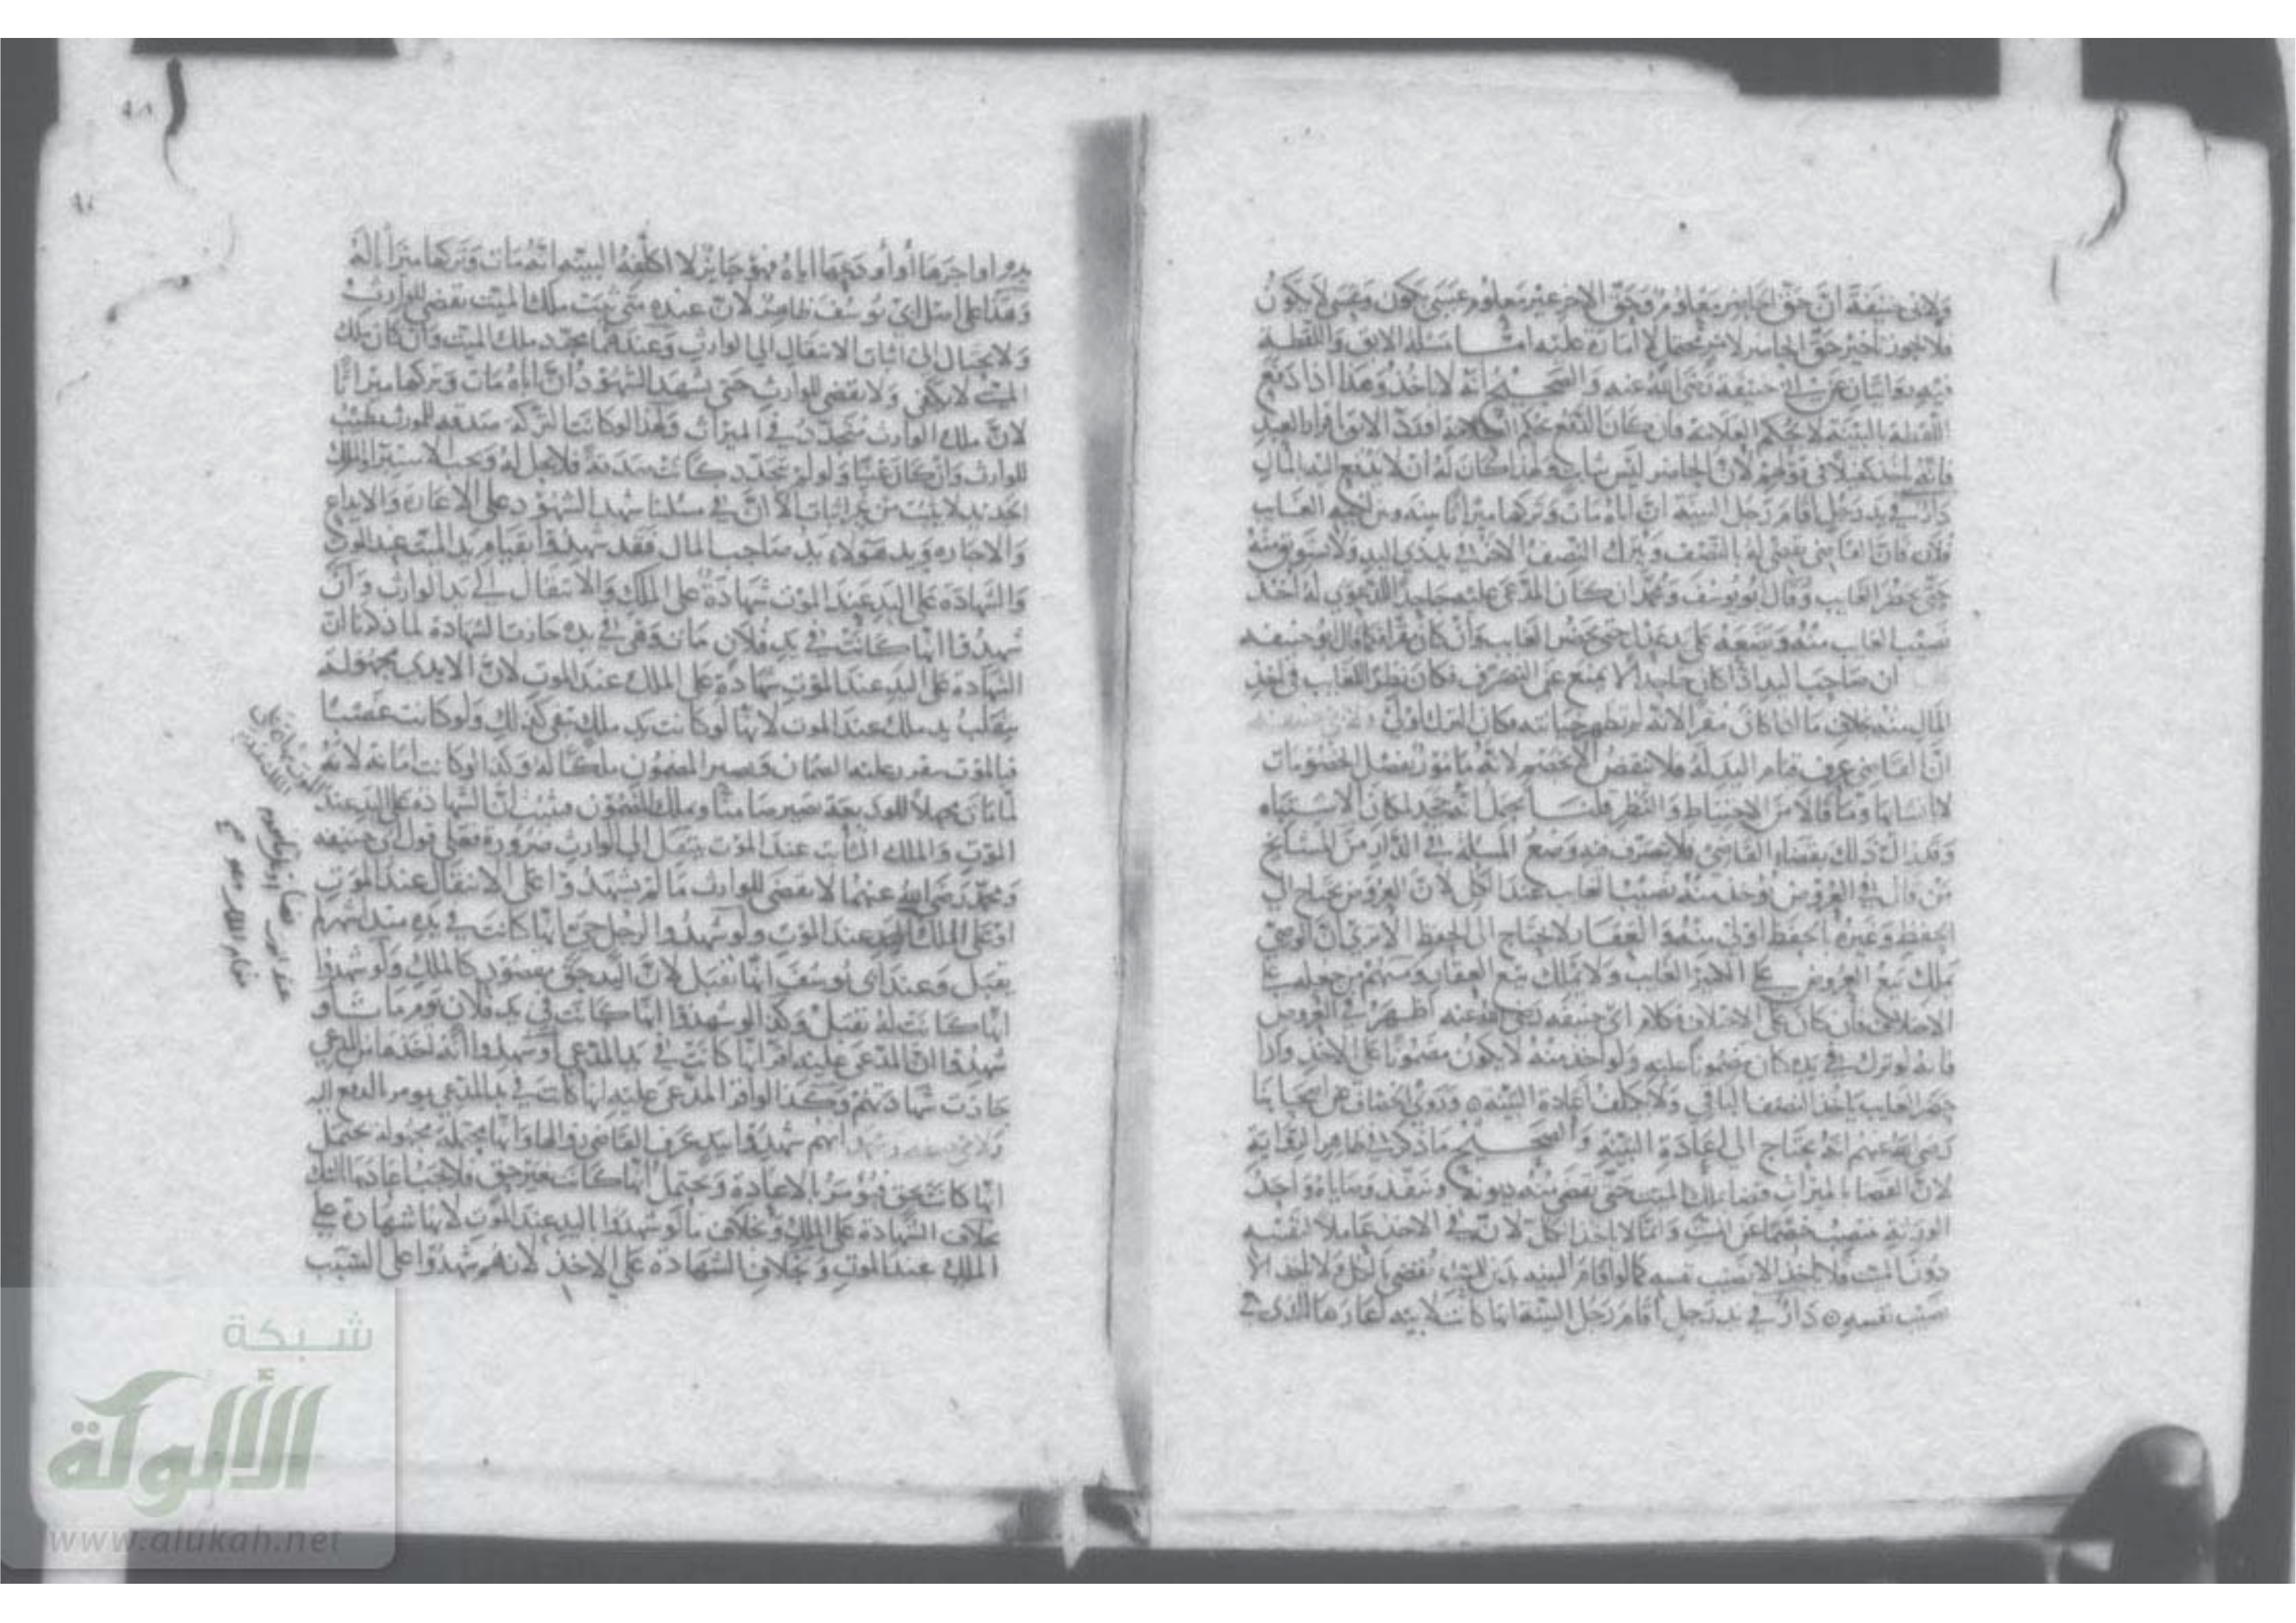 ولابي حنيفة ان حق الحاضر معلوم وحق الاخر غير معلوم عسى يكون وعسى لا يكون
فلا يجوز تاخير حق الحاضر لامر محتمل لا امارة عليه اما مسئلة الابق واللقطة
فيه روايتان عن ابي حنيفة رضي الله عنه والصحيح انه لا ياخذ وهذا اذا دفع
اللقطة بالبينة لا بحكم العلامة فان كان الدفع بحكم العلامة او رد الابق باقرار العبد
فانه ياخذ كفيلا في قولهم لان الحاضر ليس بثابت ولهذا كان له ان لا يدفع اليه المال
دار في يد رجل اقام رجل البينة ان اباه مات وتركها ميراثا بينه وبين اخيه الغايب
فلان فان القاضي يقضي له بالنصف ويترك النصف الاخر في يد ذي اليد ولا يستوثق منه
حتى يحضر الغايب وقال ابو يوسف ومحمد ان كان المدعى عليه جاحدا للدعوى له اخذ
نصيب الغايب منه ووضعه على يد عدل حتى يحضر الغايب وان كان مقرا فكما قال ابو حنيفة
ان صاحب اليد اذا كان جاحدا لا يمتنع عن التصرف فكان نظرا للغايب في اخذ
المال منه بخلاف ما اذا كان مقرا لانه لم تظهر خيانته فكان الترك اولى
ان القاضي عرف قيام اليد له فلا ينقض الا بخصم لانه مامور بفصل الخصومات
لا انشائها وما قالا من الاحتياط والنظر قلنا يحمل انه جحد لمكان الاشتباه
وقد زال ذلك بقضاء القاضي فلا يتصرف فيه وضع المسئلة في الدار من المشايخ
من قال في العروض يوخذ منه نصيب الغايب عند الكل لان العروض يحتاج الى
الحفظ وغيره احفظ اولى منه والعقار لا يحتاج الى الحفظ الا ترى ان الوصي
يملك بيع العروض على الكبير الغايب ولا يملك بيع العقار ومنهم من جعله على
الاختلاف فان كان على الاختلاف فكلام ابي حنيفة رضي الله عنه اظهر في العروض
فانه لو ترك في يده كان مضمونا عليه ولو اخذ منه لا يكون مضمونا على الاخذ واذا
حضر الغايب ياخذ النصف الباقي ولا يكلف اعادة البينة وروى الخصاف عن اصحابنا
رضي الله عنهم انه يحتاج الى اعادة البينة والصحيح ما ذكر في ظاهر الرواية
لان القضاء بالميراث قضاء للميت حتى يقضى منه ديونه وتنفذ وصاياه واحد
الورثة ينتصب خصما عن الميت وانما لا ياخذ الكل لان في الاخذ عاملا لنفسه
دون الميت فلا ياخذ الا نصيب نفسه كما لو اقام البينة بدين للميت يقضى بالكل ولا ياخذ الا
نصيب نفسه دار في يد رجل اقام رجل البينة انها كانت لابيه اعارها للذي في
يده او اجرها او اودعها اياه فهو جايز لا اكلفه البينة انه مات وتركها ميراثا له
وهذا على اصل ابي يوسف ظاهر لان عنده متى ثبت ملك الميت يقضى للوارث
ولا يحتاج الى اثبات الانتقال الى الوارث وعندهما مجرد ملك الميت وان كان ملك
الميت لا يكفي ولا يقضى للوارث حتى يشهد الشهود ان اباه مات وتركها ميراثا
لان ملك الوارث متجدد في الميراث ولهذا لو كانت التركة صدقة للمورث تطيب
للوارث وان كان غنيا ولو لم يتجدد كانت صدقة فلا يحل له ويجب الاستبراء والملك
الجديد لا يثبت من غير اثبات الا ان في مسئلتنا شهد الشهود على الاعارة والايداع
والاجارة ويد هولاء يد صاحب المال فقد شهدوا بقيام يد الميت عند الموت
والشهادة على اليد عند الموت شهادة على الملك والانتقال الى يد الوارث وان
شهدوا انها كانت في يد فلان مات وهي في يده جازت الشهادة لما ذكرنا ان
الشهادة على اليد عند الموت شهادة على الملك عند الموت لان الايدي مجهولة
ينقلب يد ملك عند الموت لانها لو كانت يد ملك فهو كذلك ولو كانت غصبا
فبالموت يتقرر عليه الضمان ويصير المضمون ملكا له وكذا لو كانت امانة لانه
لما مات مجهلا للوديعة يصير ضامنا ويملك المضمون فتبين ان الشهادة على اليد عند
الموت والملك الثابت عند الموت ينتقل الى الوارث ضرورة فعلى قول ابي حنيفة
ومحمد رضي الله عنهما لا يقضى للوارث ما لم يشهدوا على الانتقال عند الموت
او على الملك او اليد عند الموت ولو شهدوا لرجل حي انها كانت في يده منذ اشهر لم
يقبل وعند ابي يوسف انها تقبل لان اليد حق مقصود كالملك ولو شهدوا
انها كانت له تقبل وكذا لو شهدوا انها كانت في يد فلان يوم مات او
شهدوا ان المدعى عليه اقر انها كانت في يد المدعي او شهدوا انه اخذها من المدعي
جازت شهادتهم وكذا لو اقر المدعى عليه انها كانت في يد المدعي يومر بالدفع اليه
انهم شهدوا بيد عرف القاضي زوالها وانها مجهولة يحتمل
انها كانت بحق فيومر بالاعادة ويحتمل انها كانت بغير حق فلا يجب اعادتها بالشك
بخلاف الشهادة على الملك وبخلاف ما لو شهدوا باليد عند الموت لانها شهادة على
الملك عند الموت وبخلاف الشهادة على الاخذ لانهم شهدوا على السبب
شبكة
الألوكة
www.alukah.net